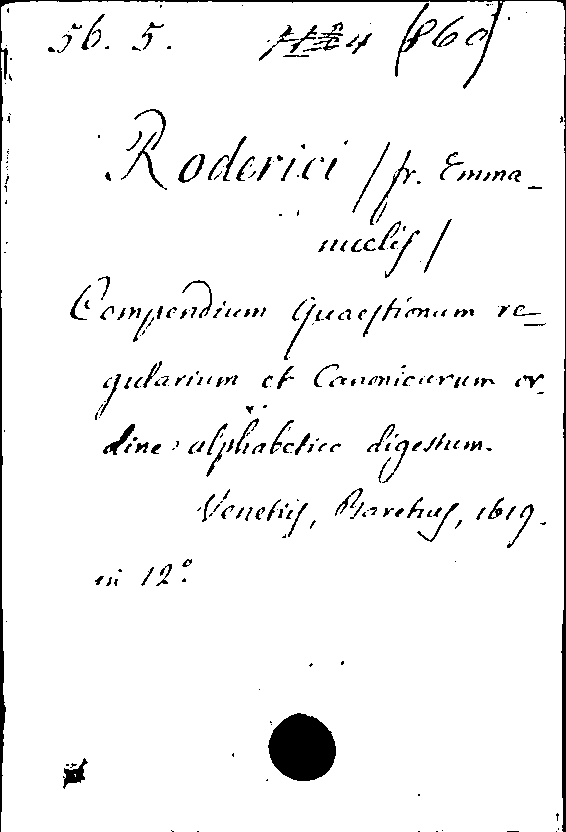 56. 5. 4 (860)
Roderici / fr. Emma_
nuelis /
Compendium Quaestionum re_
gularium et Canonicarum or_
dine alphabetico digestum.
Venetiis, Baretius, 1619.
in 12º